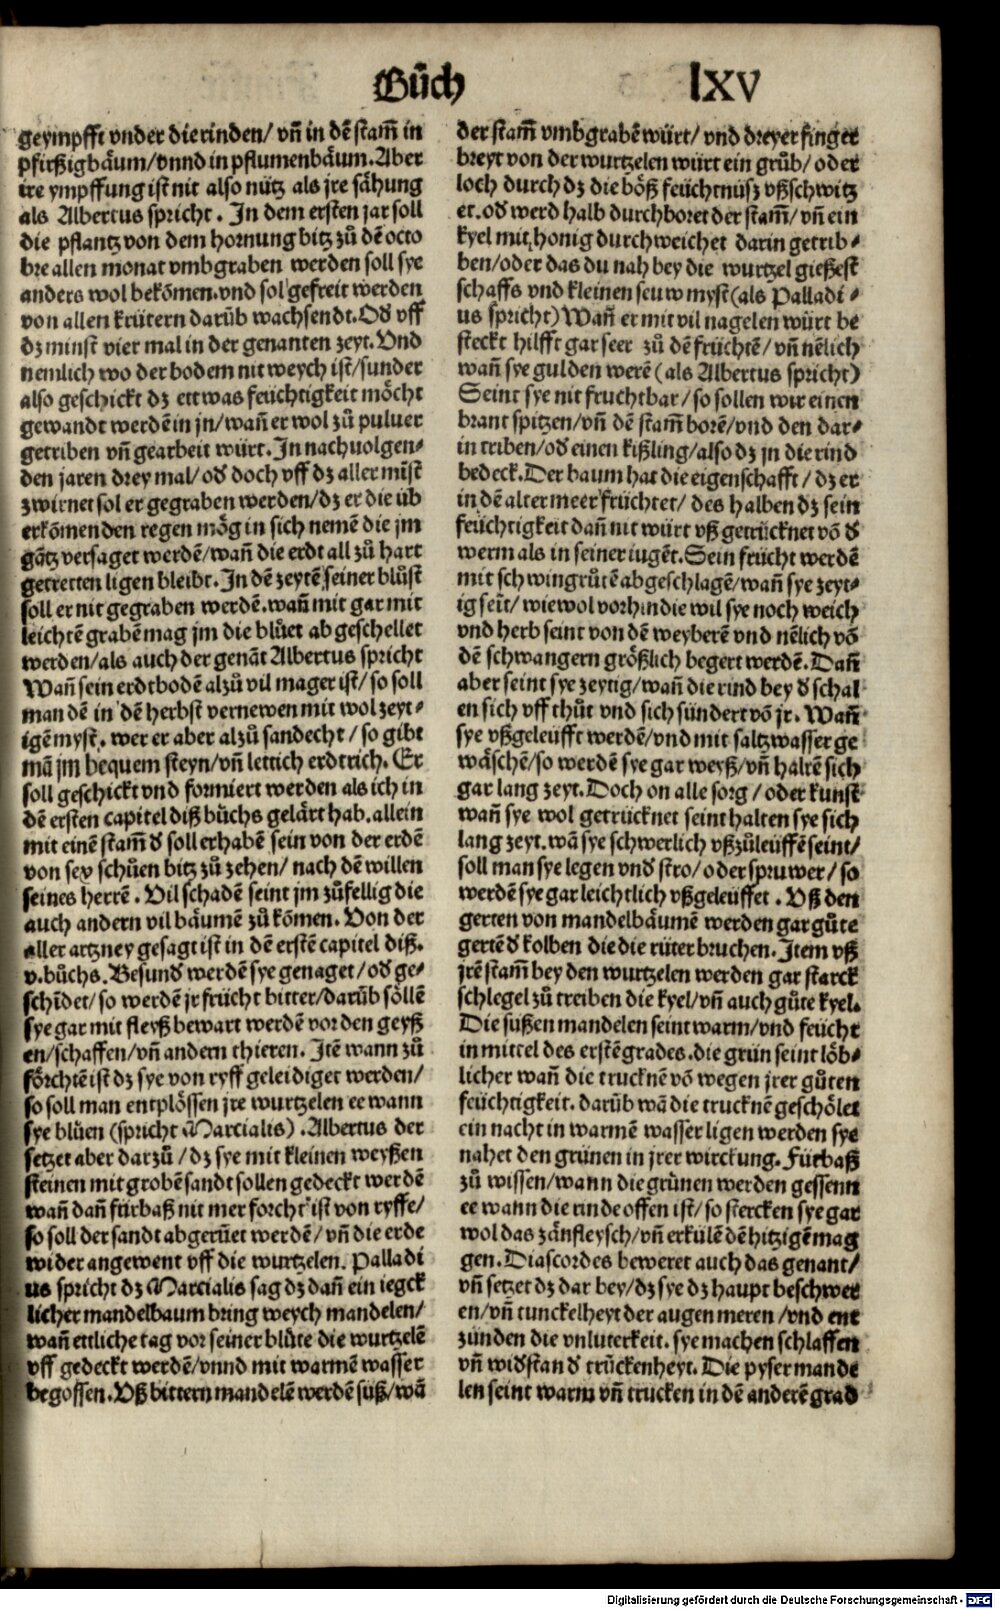 Bůch
lXV
geympfft vnder die rinden/ vñ in dē stam̄ in
pfirßigbäum/vnnd in pflumenbäum. Aber
ire ympffung ist nit also nütz als jre sähung
als Albertus spricht. In dem ersten jar soll
die pflantz von dem hornung bitz zů dē octo
bre allen monat vmbgraben werden soll sye
anders wol bekōmen. vnd sol gefreit werden
von allen krütern darüb wachsendt. Od vff
dz minst vier mal in der genanten zeyt. Vnd
nemlich wo der bodem nit weych ist/sunder
also geschickt dz ettwas feüchtigkeit möcht
gewandt werdē in jn/ wañ er wol zů puluer
getriben vñ gearbeit würt. In nachuolgen-
den jaren drey mal/ od doch vff dz aller mīst
zwirnet sol er gegraben werden/dz er die üb
erkōmenden regen mög in sich nemē die jm
gātz versaget werdē/wañ die erdt all zů hart
getretten ligen bleibt. In dē zeytē seiner blůst
soll er nit gegraben werdē. wañ mit gar mit
leichtē grabē mag jm die blůet ab geschellet
werden/als auch der genāt Albertus spricht
Wañ sein erdtbodē alzů vil mager ist/ so soll
man dē in dē herbst vernewen mit wol zeyt-
igē myst. wer er aber alzů sandecht/ so gibt
mā jm bequem steyn/vñ lettich erdtrich. Er
soll geschickt vnd formiert werden als ich in
dē ersten capitel diß bůchs gelärt hab. allein
mit einē stam̄ d soll erhabē sein von der erdē
von sex schůen bitz zů zehen/ nach dē willen
seines herrē. Vil schadē seint jm zůfellig die
auch andern vil bäumē zů kōmen. Von der
aller artzney gesagt ist in dē erstē capitel diß.
v. bůchs. Besund werdē sye genaget/ od ge-
schīdet/ so werdē jr frücht bitter/darüb söllē
sye gar mit fleyß bewart werdē vor den geyß
en/schaffen/vñ andern thieren. Itē wann zů
förchtē ist dz sye von ryff geleidiget werden/
so soll man entplössen jre wurtzelen ee wann
sye blüen (spricht Marcialis). Albertus der
setzet aber darzů/ dz sye mit kleinen weyßen
steinen mit grobē sandt sollen gedeckt werdē
wañ dañ fürbaß nit mer forcht ist von ryffe/
so soll der sandt abgerüet werdē/ vñ die erde
wider angewent vff die wurtzelen. Palladi
us spricht dz Marcialis sag dz dañ ein iegck
licher mandelbaum bring weych mandelen/
wañ ettliche tag vor seiner blůte die wurtzelē
vff gedeckt werdē/vnnd mit warmē wasser
begossen. Vß bittern mandelē werdē süß/wā
der stam̄ vmbgrabē würt/ vnd dreyer finger
breyt von der wurtzelen würt ein grüb/ oder
loch durch dz die bößz feüchtnüsz vßschwitz
et. od werd halb durchboret der stam̄/ vñ ein
kyel mit honig durchweichet darin getrib-
ben/oder das du nah bey die wurtzel gießest
schaffs vnd kleinen seuw myst (als Palladi-
us spricht) Wañ er mit vil nagelen würt be
steckt hilfft gar seer zů dē früchtē/ vñ nēlich
wañ sye gulden werē (als Albertus spricht)
Seint sye nit fruchtbar/ so sollen wir einen
brant spitzen/ vñ dē stam̄ borē/vnd den dar-
in triben/od einen kißling/also dz jn die rind
bedeck. Der baum hat die eigenschafft/ dz er
in dē alter meer früchtet/ des halben dz sein
feüchtigkeit dañ nit würt vß getrücknet vō d
werm als in seiner iugēt. Sein frücht werdē
mit schwingrůtē abgeschlagē/wañ sye zeyt-
ig seīt/ wiewol vorhin die wil sye noch weich
vnd herb seint von dē weyberē vnd nēlich vō
dē schwangern größlich begert werdē. Dañ
aber seint sye zeytig/wañ die rind bey d schal
en sich vff thůt vnd sich sündert vō jr. Wañ
sye vßgeleüfft werdē/vnd mit saltzwasser ge
wäschē/so werdē sye gar weyß/vñ haltē sich
gar lang zeyt. Doch on alle sorg/ oder kunst
wañ sye wol getrücknet seint halten sye sich
lang zeyt. wā sye schwerlich vßzůleüffē seint/
soll man sye legen vnd stro/ oder spruwer/ so
werdē sye gar leichtlich vßgeleüffet. Vß den
gerten von mandelbäumē werden gar gůte
gertē d kolben die die rüter bruchen. Item vß
jrē stam̄ bey den wurtzelen werden gar starck
schlegel zů treiben die kyel/vñ auch gůte kyel.
Die süßen mandelen seint warm/vnd feücht
in mittel des erstē grades. die grün seint löb-
licher wañ die trucknē vō wegen jrer gůten
feüchtigkeit. darüb wā die trucknē geschölet
ein nacht in warmē wasser ligen werden sye
nahet den grünen in jrer wirckung. Fürbaß
zů wissen/wann die grünen werden gessenn
ee wann die rinde offen ist/ so stercken sye gar
wol das zänfleysch/vñ erkülē dē hitzigē mag
gen. Diascordes beweret auch das genant/
vñ setzet dz dar bey/dz sye dz haupt beschwer
en/vñ tunckelheyt der augen meren/vnd ent
zünden die vnluterkeit. sye machen schlaffen
vñ widstand trückenheyt. Die pyser mande
len seint warm vñ trucken in dē anderē grad
Digitalisierung gefördert durch die Deutsche Forschungsgemeinschaft - DFG